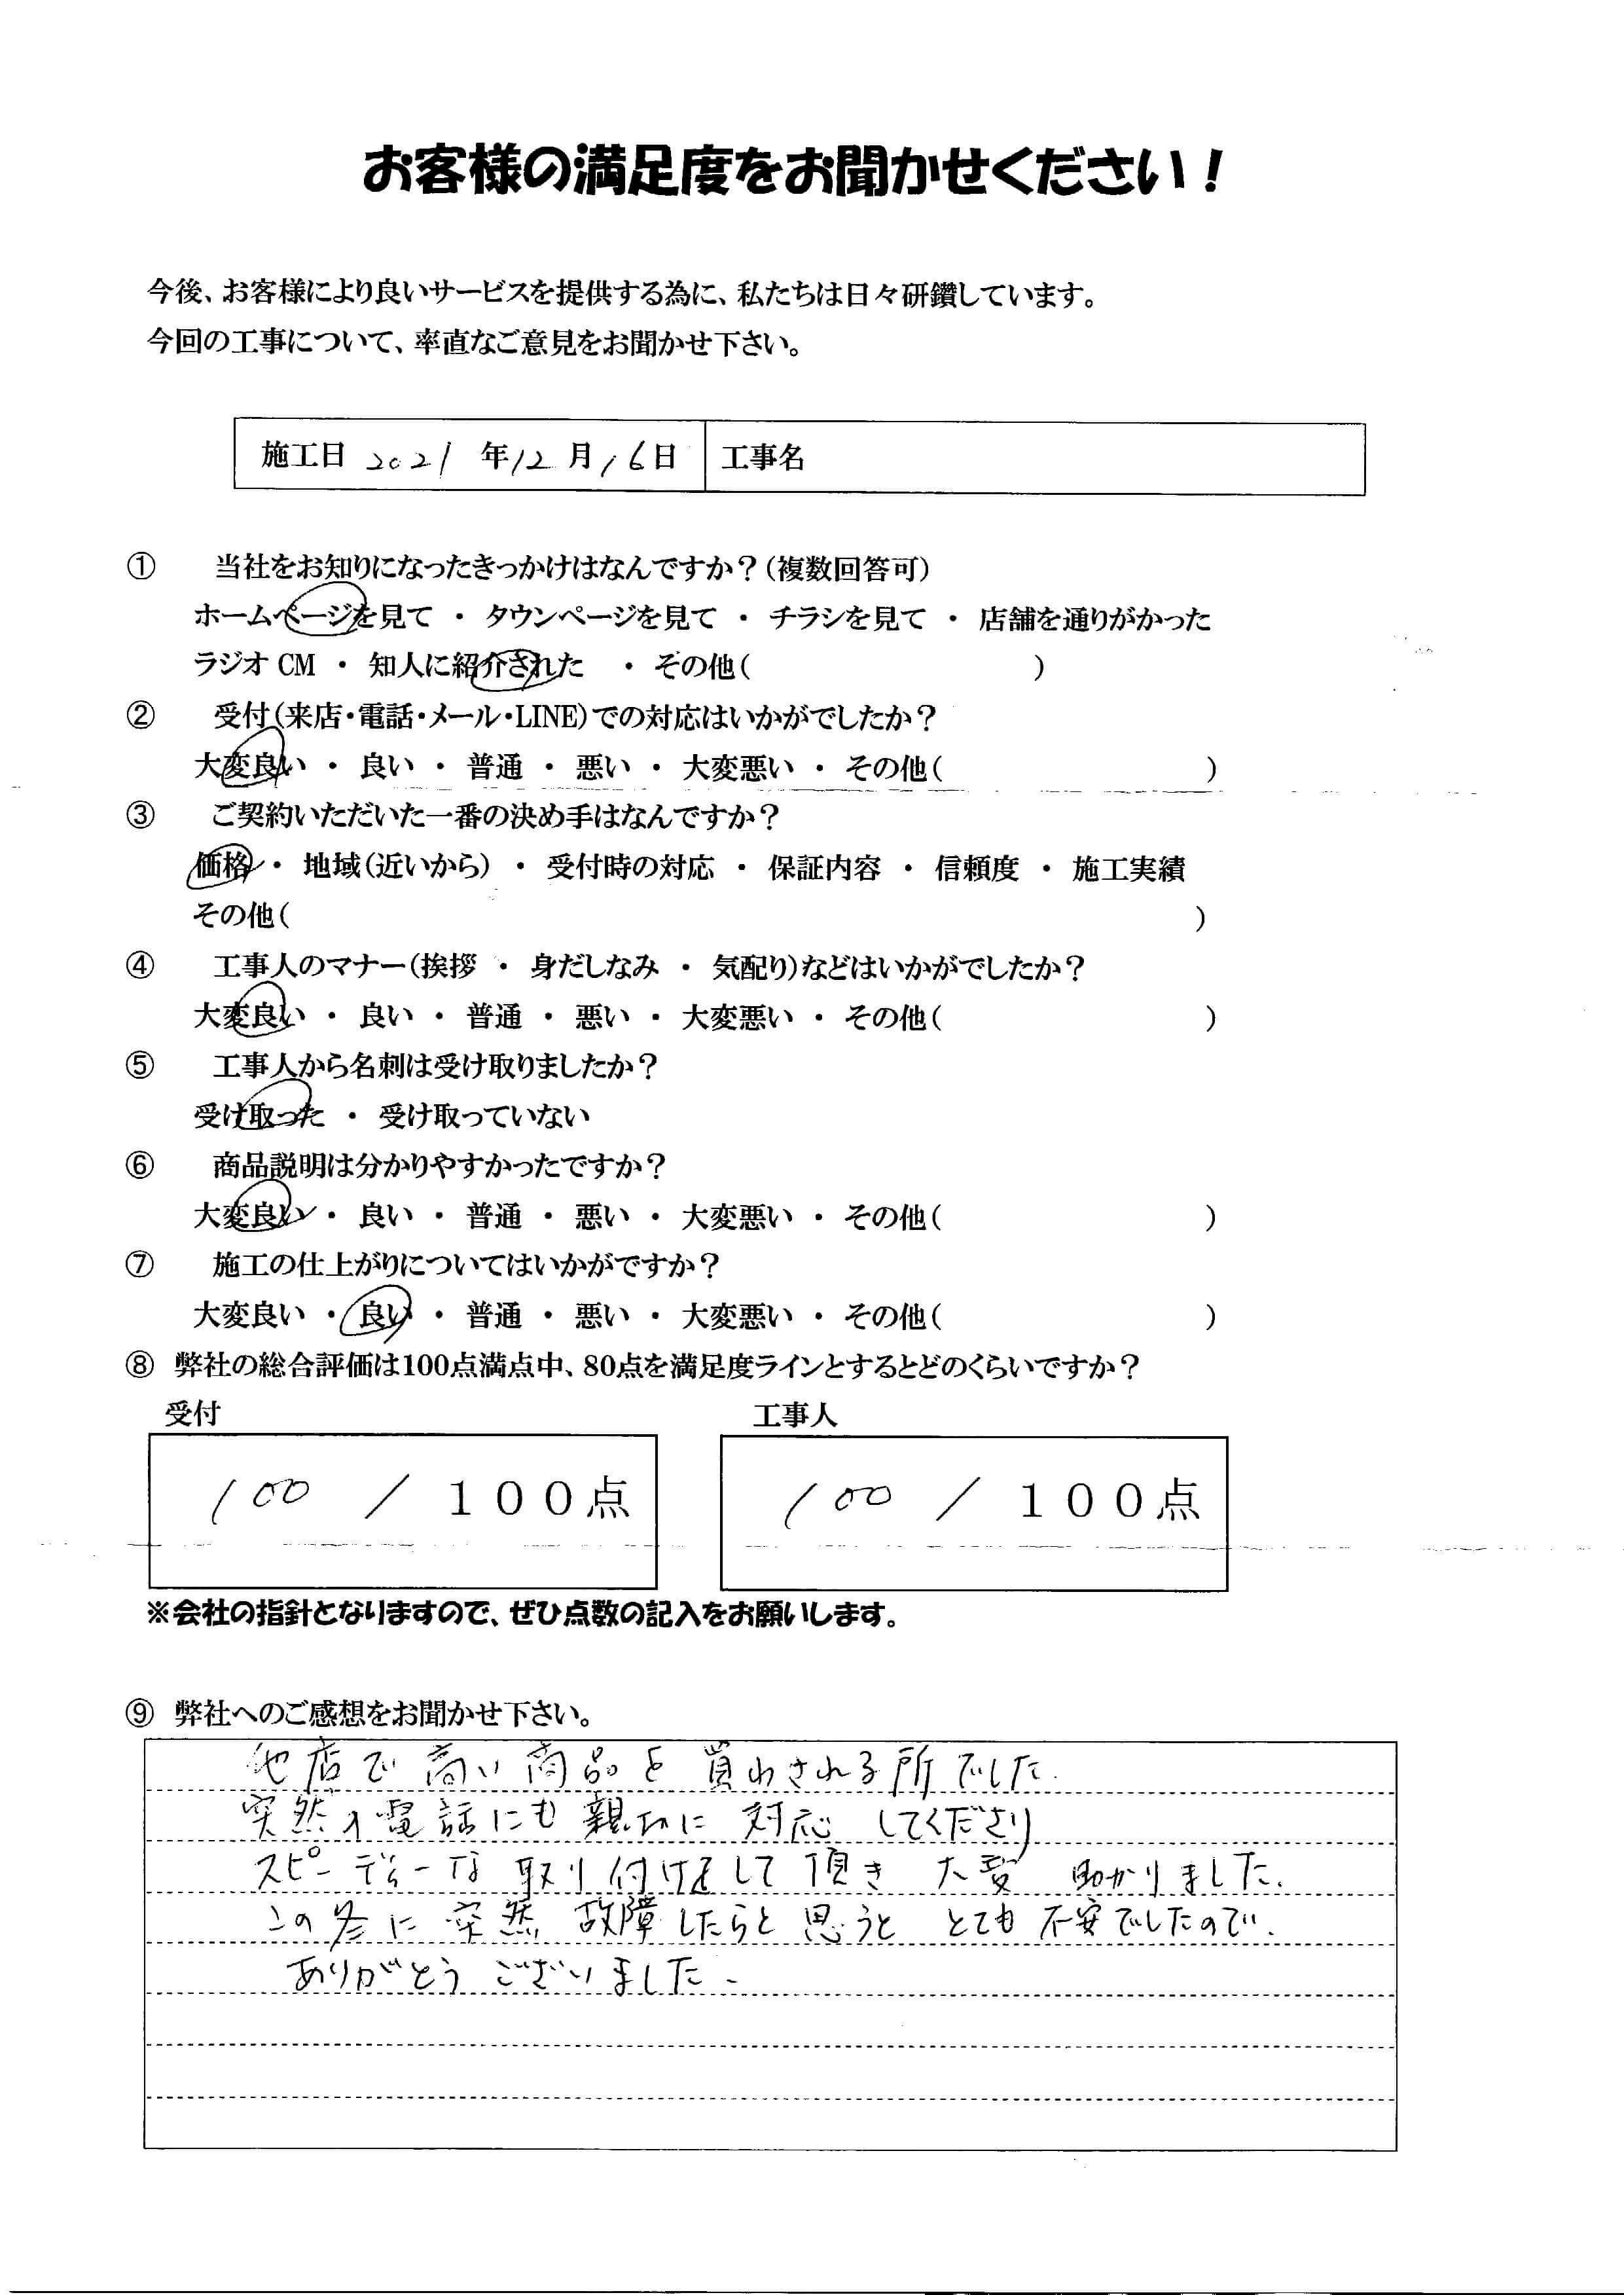 お客様の満足度をお聞かせください！
今後、お客様により良いサービスを提供する為に、私たちは日々研鑽しています。
今回の工事について、率直なご意見をお聞かせ下さい。
施工日 2021 年12 月16日 工事名
① 当社をお知りになったきっかけはなんですか？（複数回答可）
ホームページを見て ・ タウンページを見て ・ チラシを見て ・ 店舗を通りがかった
ラジオ CM ・ 知人に紹介された ・ その他（ ）
② 受付（来店・電話・メール・LINE）での対応はいかがでしたか？
大変良い ・ 良い ・ 普通 ・ 悪い ・ 大変悪い ・ その他（ ）
③ ご契約いただいた一番の決め手はなんですか？
価格 ・ 地域（近いから） ・ 受付時の対応 ・ 保証内容 ・ 信頼度 ・ 施工実績
その他（ ）
④ 工事人のマナー（挨拶 ・ 身だしなみ ・ 気配り）などはいかがでしたか？
大変良い ・ 良い ・ 普通 ・ 悪い ・ 大変悪い ・ その他（ ）
⑤ 工事人から名刺は受け取りましたか？
受け取った ・ 受け取っていない
⑥ 商品説明は分かりやすかったですか？
大変良い ・ 良い ・ 普通 ・ 悪い ・ 大変悪い ・ その他（ ）
⑦ 施工の仕上がりについてはいかがですか？
大変良い ・ 良い ・ 普通 ・ 悪い ・ 大変悪い ・ その他（ ）
⑧ 弊社の総合評価は100点満点中、80点を満足度ラインとするとどのくらいですか？
受付 工事人
100 ／ １００点 100 ／ １００点
※会社の指針となりますので、ぜひ点数の記入をお願いします。
⑨ 弊社へのご感想をお聞かせ下さい。
他店で高い商品を買わされる所でした.
突然の電話にも親切に対応してくださり
スピーディーな取り付けをして頂き 大変 助かりました.
この冬に突然 故障したらと思うと とても不安でしたので.
ありがとうございました.